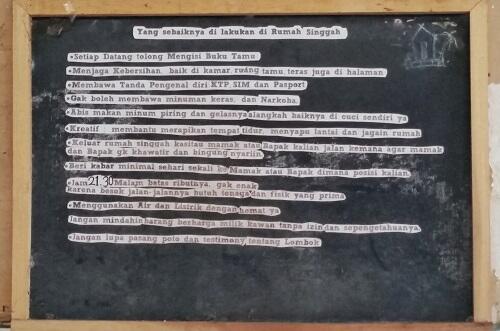 Yang sebaiknya di lakukan di Rumah Singgah
•Setiap Datang tolong Mengisi Buku Tamu
•Menjaga Kebersihan baik di kamar, ruang tamu teras juga di halaman
•Membawa Tanda Pengenal diri KTP, SIM dan Pasport
•Gak boleh membawa minuman keras, dan Narkoba
•Abis makan minum piring dan gelasnya alangkah baiknya di cuci sendiri ya
•Kreatif membantu merapikan tempat tidur, menyapu lantai dan jagain rumah
•Keluar rumah singgah kasitau mamak atau Bapak kalian jalan kemana agar mamak
dan Bapak gk khawatir dan bingung nyariin
•Beri kabar minimal sehari sekali ke Mamak atau Bapak dimana posisi kalian
•Jam 21.30 Malam batas ributnya, gak enak
karena besok jalan-jalannya butuh tenaga dan fisik yang prima
•Menggunakan Air dan Listrik dengan hemat ya
Jangan mindahin barang berharga milik kawan tanpa izin dan sepengetahuanya
•Jangan lupa pasang poto dan testimony tentang Lombok